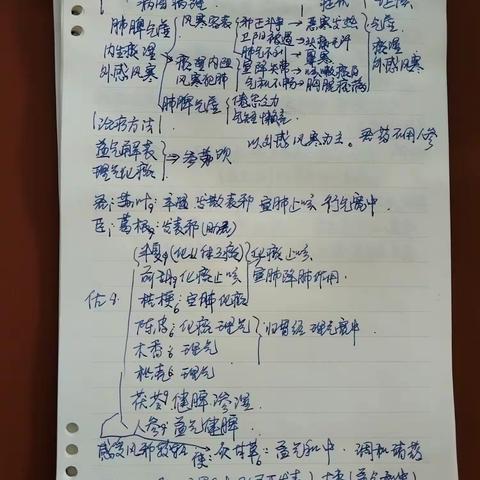 病因病機
肺脾气虚
内生痰湿
外感风寒
风寒客表
痰湿内阻
风寒犯肺
肺脾气虚
邪正斗争→恶寒发热
卫阳被遏→头痛无汗
肺气不利→鼻塞
宣降失常→咳嗽痰白
气机不畅→胸脘痞满
倦怠乏力
气短懒言
气虚
痰湿
外感风寒
治疗方法
益气解表
理气化痰
⇒参苏饮
以外感风寒为主。
君:苏叶9:辛温 发散表邪 宣肺止咳 行气宽中.
臣:葛根9:发表邪(肌表)
佐
半夏9
化痰止咳
前胡9:化痰止咳
宣肺降肺作用.
桔梗6:宣肺化痰
陈皮6:化痰 理气
理气宽中
木香6 理气
枳壳6 理气
茯苓9 健脾渗湿
人参9 益气健脾.
感受风邪
使:炙甘草6:益气和中. 调和诸药